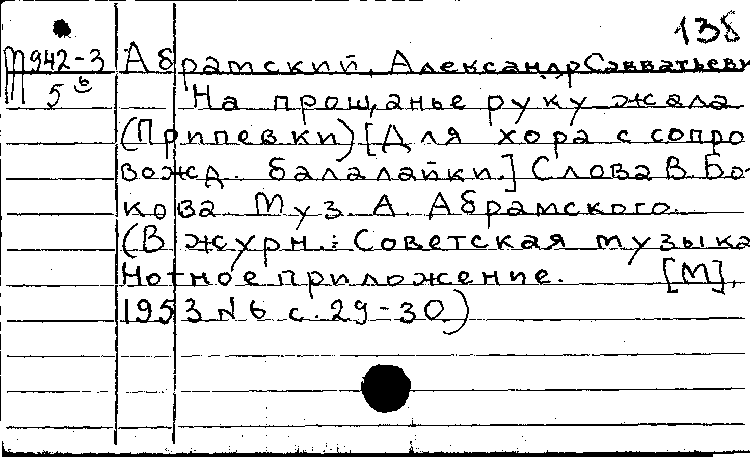 138
М942-3 Абрамский, Александр Савватьеви
5в На прощанье руку жала
(Припевки) [Для хора с сопро
вожд. балалайки.] Слова В. Бо-
кова Муз. А. Абрамского.
(В журн.: Советская музыка
Нотное приложение. [М],
1953 № 6 с. 29-30)